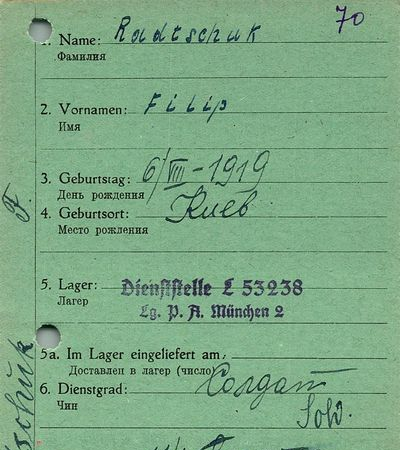 70
1. Name: Radtschuk
Фамилия
2. Vornamen: Filip
Имя
3. Geburtstag: 6/VIII-1919
День рождения
4. Geburtsort: Киев
Место рождения
5. Lager: Dienststelle L 53238
Лагерь
Lg. P. A. München 2
5a. Im Lager eingeliefert am
Доставлен в лагер (число)
6. Dienstgrad: Солдат
Чин
Sold.